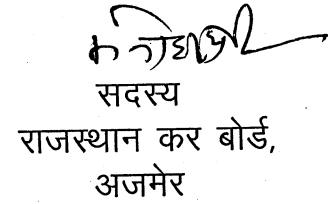 सदस्य
राजस्थान कर बोर्ड,
अजमेर